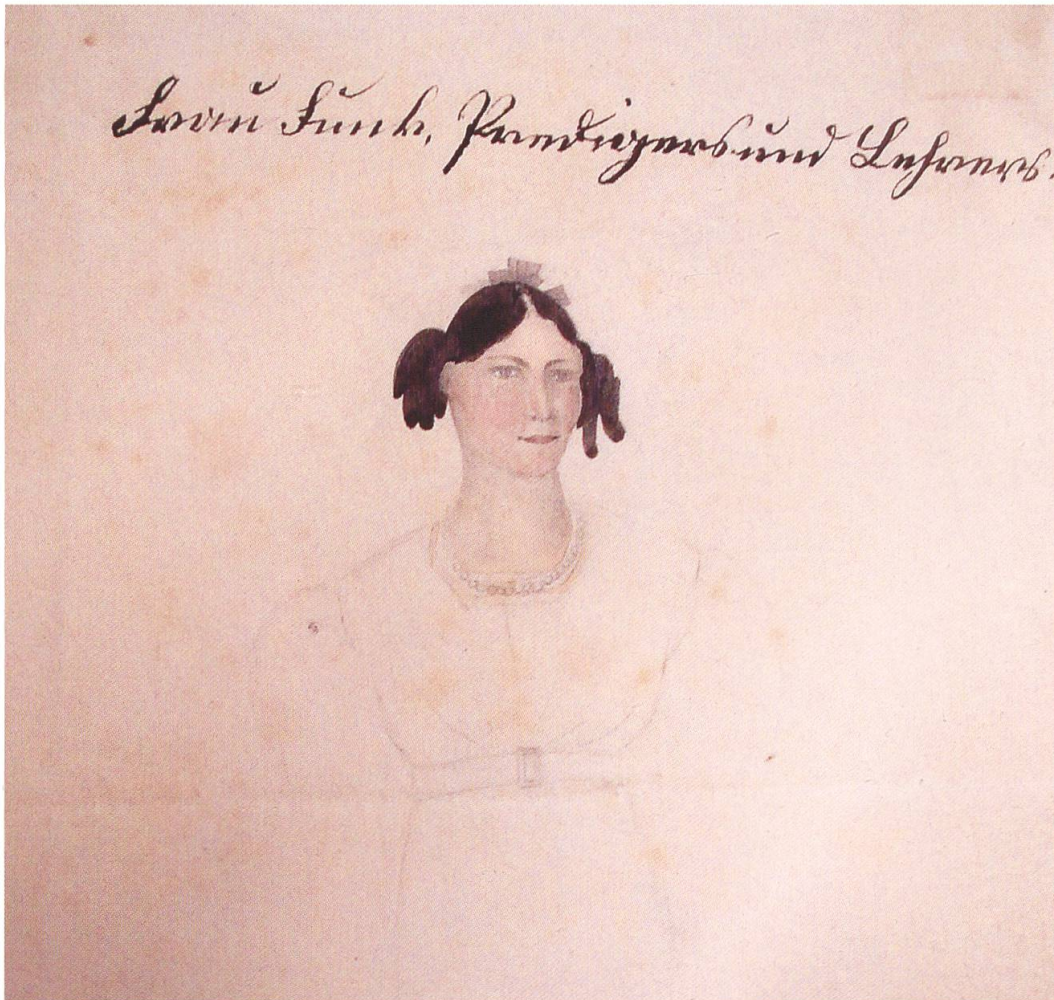 Frau Funk, Predigers und Lehrers.